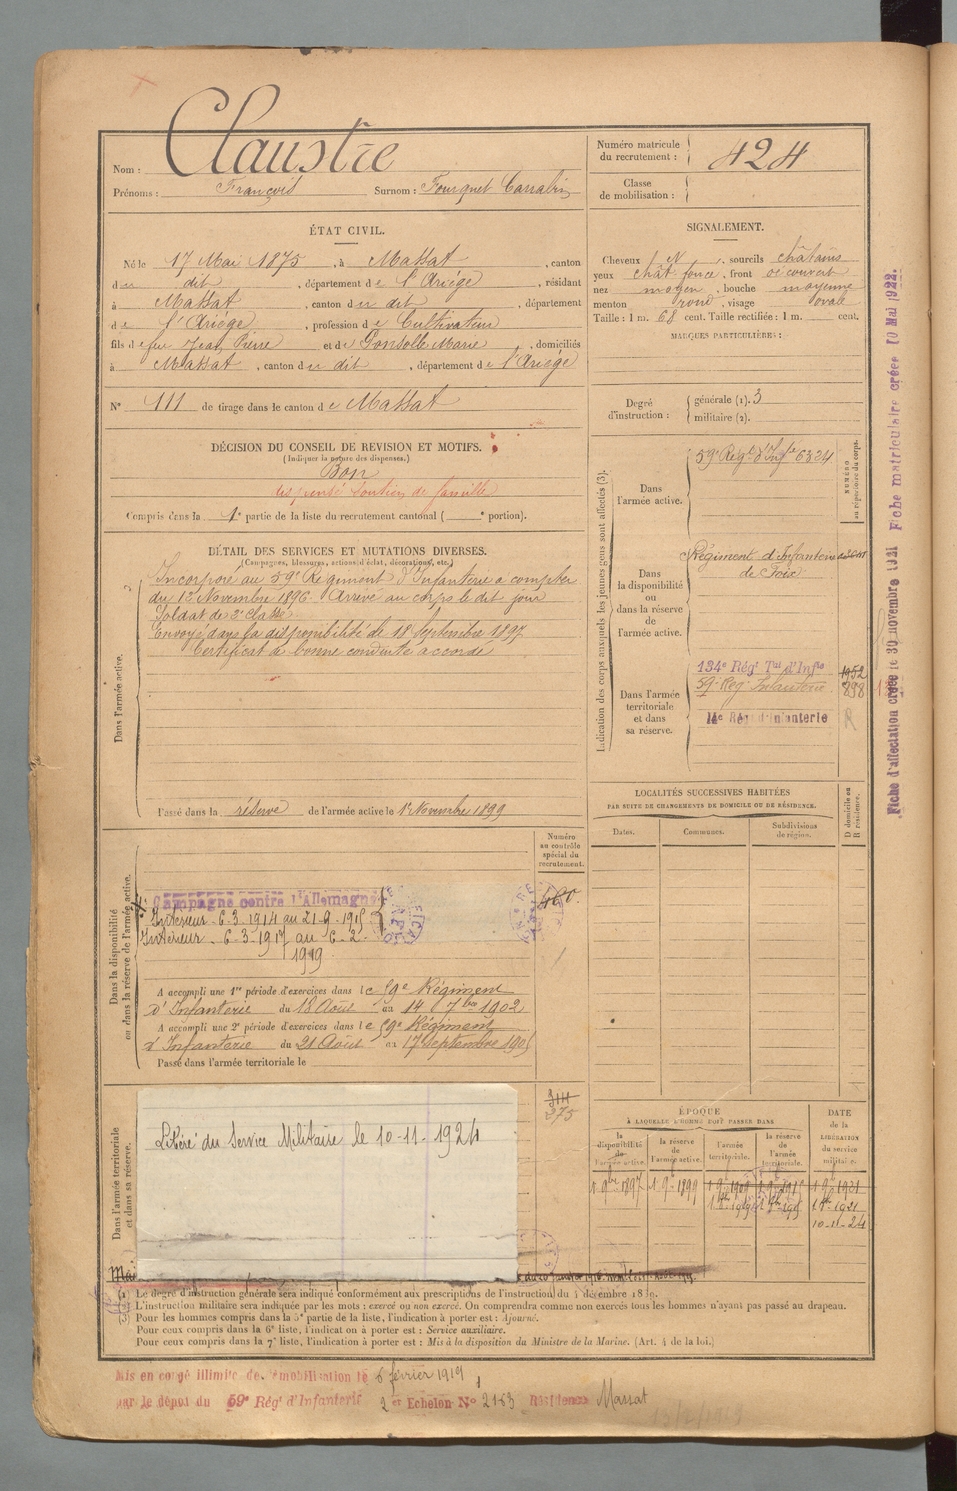 Nom : Claustre
Prénoms : François Surnom : Fourquet Carralin
Numéro matricule du recrutement : 424
Classe de mobilisation :
ÉTAT CIVIL.
Né le 17 Mai 1875, à Massat, canton
du dit, département de l'Ariège, résidant
à Massat, canton du dit, département
de l'Ariège, profession de Cultivateur
fils de feu Jean Pierre et de Gonsolle Marie, domiciliés
à Massat, canton du dit, département de l'Ariège
N° 111 de tirage dans le canton de Massat
SIGNALEMENT.
Cheveux N, sourcils châtains
yeux chât foncé, front découvert
nez moyen, bouche moyenne
menton rond, visage ovale
Taille : 1 m. 68 cent. Taille rectifiée : 1 m. cent.
MARQUES PARTICULIÈRES :
Degré d'instruction : générale (1). 3
militaire (2).
DÉCISION DU CONSEIL DE REVISION ET MOTIFS.
(Indiquer la nature des dispenses.)
Bon
dispensé soutien de famille
Compris dans la 1e partie de la liste du recrutement cantonal ( e portion).
DÉTAIL DES SERVICES ET MUTATIONS DIVERSES.
(Campagnes, blessures, actions d'éclat, décorations, etc.)
Dans l'armée active.
Incorporé au 59e Régiment d'Infanterie à compter
du 12 Novembre 1896. Arrivé au corps le dit jour
Soldat de 2e classe
Envoyé dans la disponibilité le 18 Septembre 1897
Certificat de bonne conduite accordé
Passé dans la réserve de l'armée active le 1er Novembre 1899
Indication des corps auxquels les jeunes gens sont affectés (3).
NUMÉRO au répertoire du corps.
Dans l'armée active.
59e Regt d'Infie 6324
Dans la disponibilité ou dans la réserve de l'armée active.
Régiment d'Infanterie
de Foix
Dans l'armée territoriale et dans sa réserve.
134e Régt Tal d'Infie 1952
59e Reg Infanterie 898
14e Régt d'Infanterie
Fiche d'affectation créée le 30 novembre 1921 Fiche matriculaire créée 10 Mai 1922.
LOCALITÉS SUCCESSIVES HABITÉES
PAR SUITE DE CHANGEMENTS DE DOMICILE OU DE RÉSIDENCE.
Dates. Communes. Subdivisions de région.
D domicile ou R résidence.
Numéro au contrôle spécial du recrutement.
Dans la disponibilité ou dans la réserve de l'armée active.
Campagne contre l'Allemagne
Intérieur - 6-3-1914 au 21-9-1915
Intérieur - 6-3-1917 au 6-2-
1919
A accompli une 1re période d'exercices dans le 59e Régiment
d'Infanterie du 18 Août au 14 7bre 1902
A accompli une 2e période d'exercices dans le 59e Régiment
d'Infanterie du 21 Août au 17 Septembre 1905
Passé dans l'armée territoriale le
Dans l'armée territoriale et dans sa réserve.
375
Libéré du Service Militaire le 10-11-1924
ÉPOQUE
À LAQUELLE L'HOMME DOIT PASSER DANS
la disponibilité de l'armée active. la réserve de l'armée active. l'armée territoriale. la réserve de l'armée territoriale.
DATE de la LIBÉRATION du service militaire.
1 9bre 1897 1 9e 1899
10-11-24
(1) Le degré d'instruction générale sera indiqué conformément aux prescriptions de l'instruction du
(2) L'instruction militaire sera indiquée par les mots : exercé ou non exercé. On comprendra comme non exercés tous les hommes n'ayant pas passé au drapeau.
(3) Pour les hommes compris dans la 5e partie de la liste, l'indication à porter est : Ajourné.
Pour ceux compris dans la 6e liste, l'indication à porter est : Service auxiliaire.
Pour ceux compris dans la 7e liste, l'indication à porter est : Mis à la disposition du Ministre de la Marine. (Art. 4 de la loi.)
Mis en congé illimité de démobilisation le 6 février 1919
par le dépôt du 59e Régt d'Infanterie 2 er Echelon No 2163 Résidence Massat